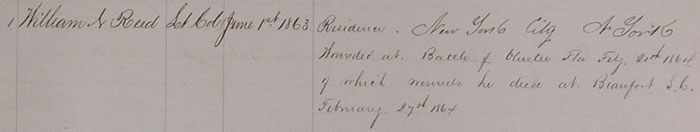 1 William N Reed Lt Col June 1st 1863. Residence. New York City N York
Wounded at Battle of Olustee Fla Feby. 20th 1864
of which wounds he died at Beaufort S.C.
February. 27th 1864